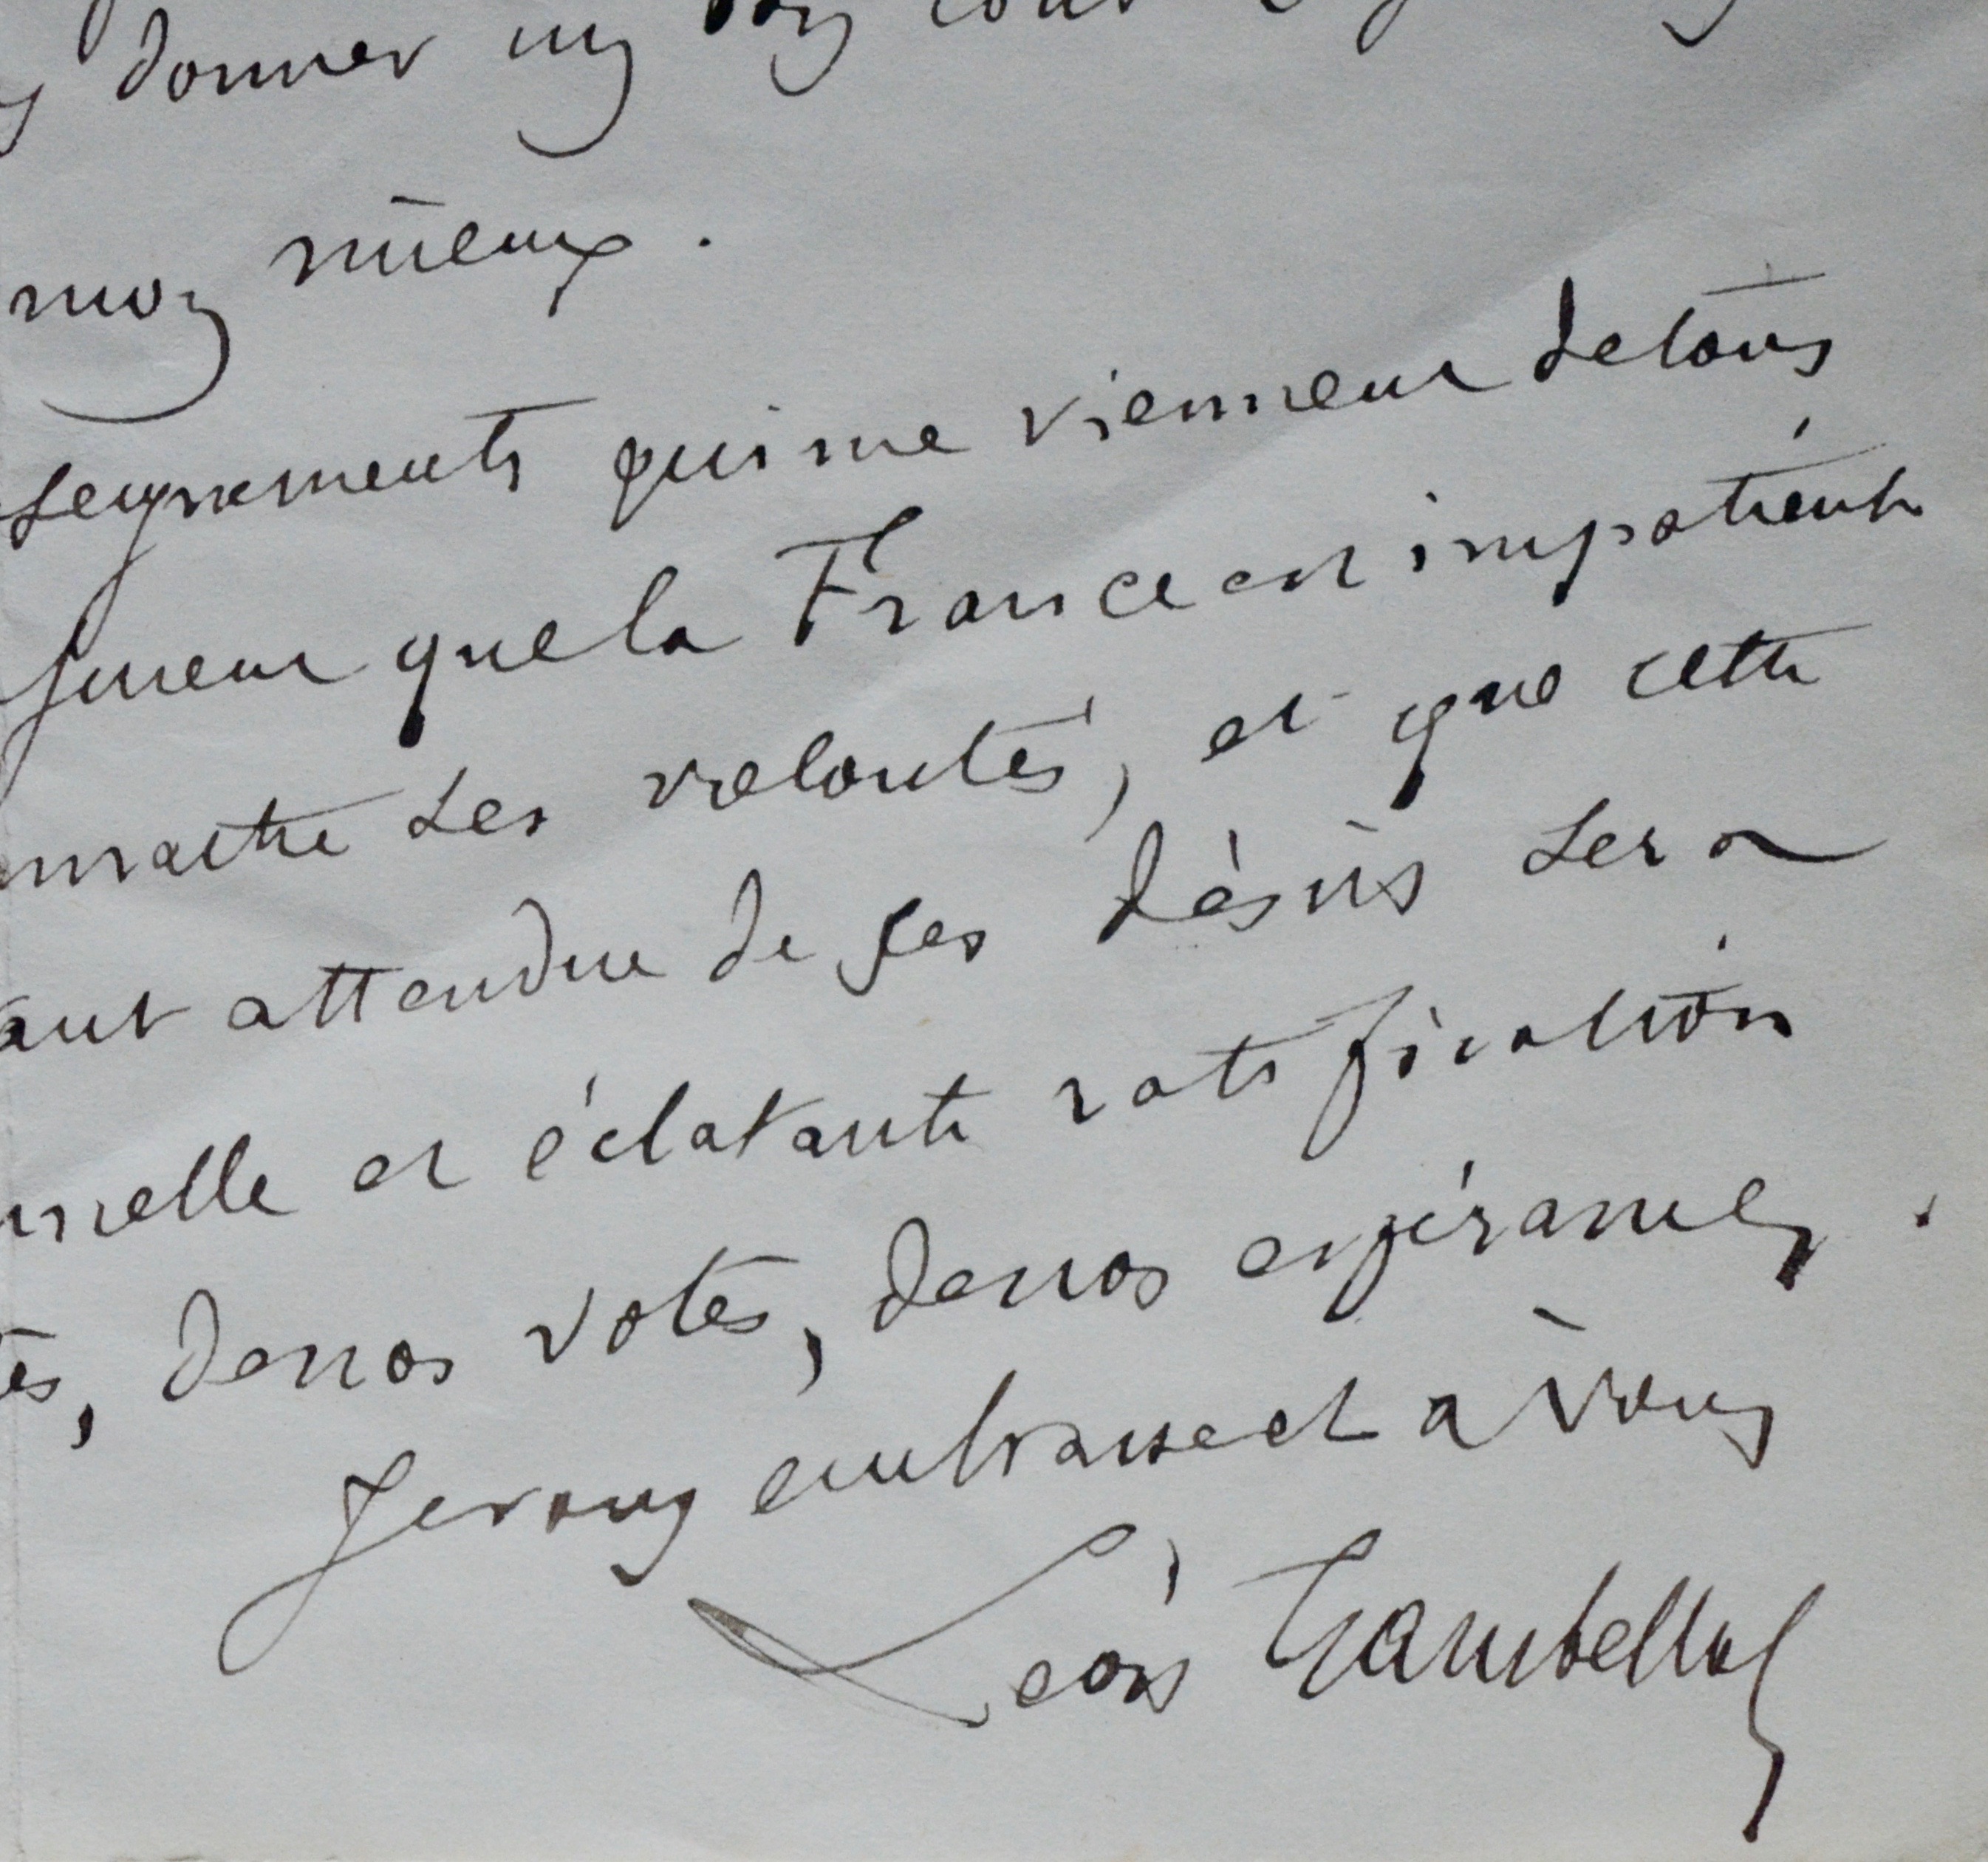 donner un bon
mon mieux.
seignements qui me viennent de tous
surent que la France est impatiente
naitre ses volontés, et que cette
ant attendue de ses désirs sera
nelle et éclatante ratification
és, de nos votes, de nos espérances.
Je vous embrasse et à vous
Léon Gambetta